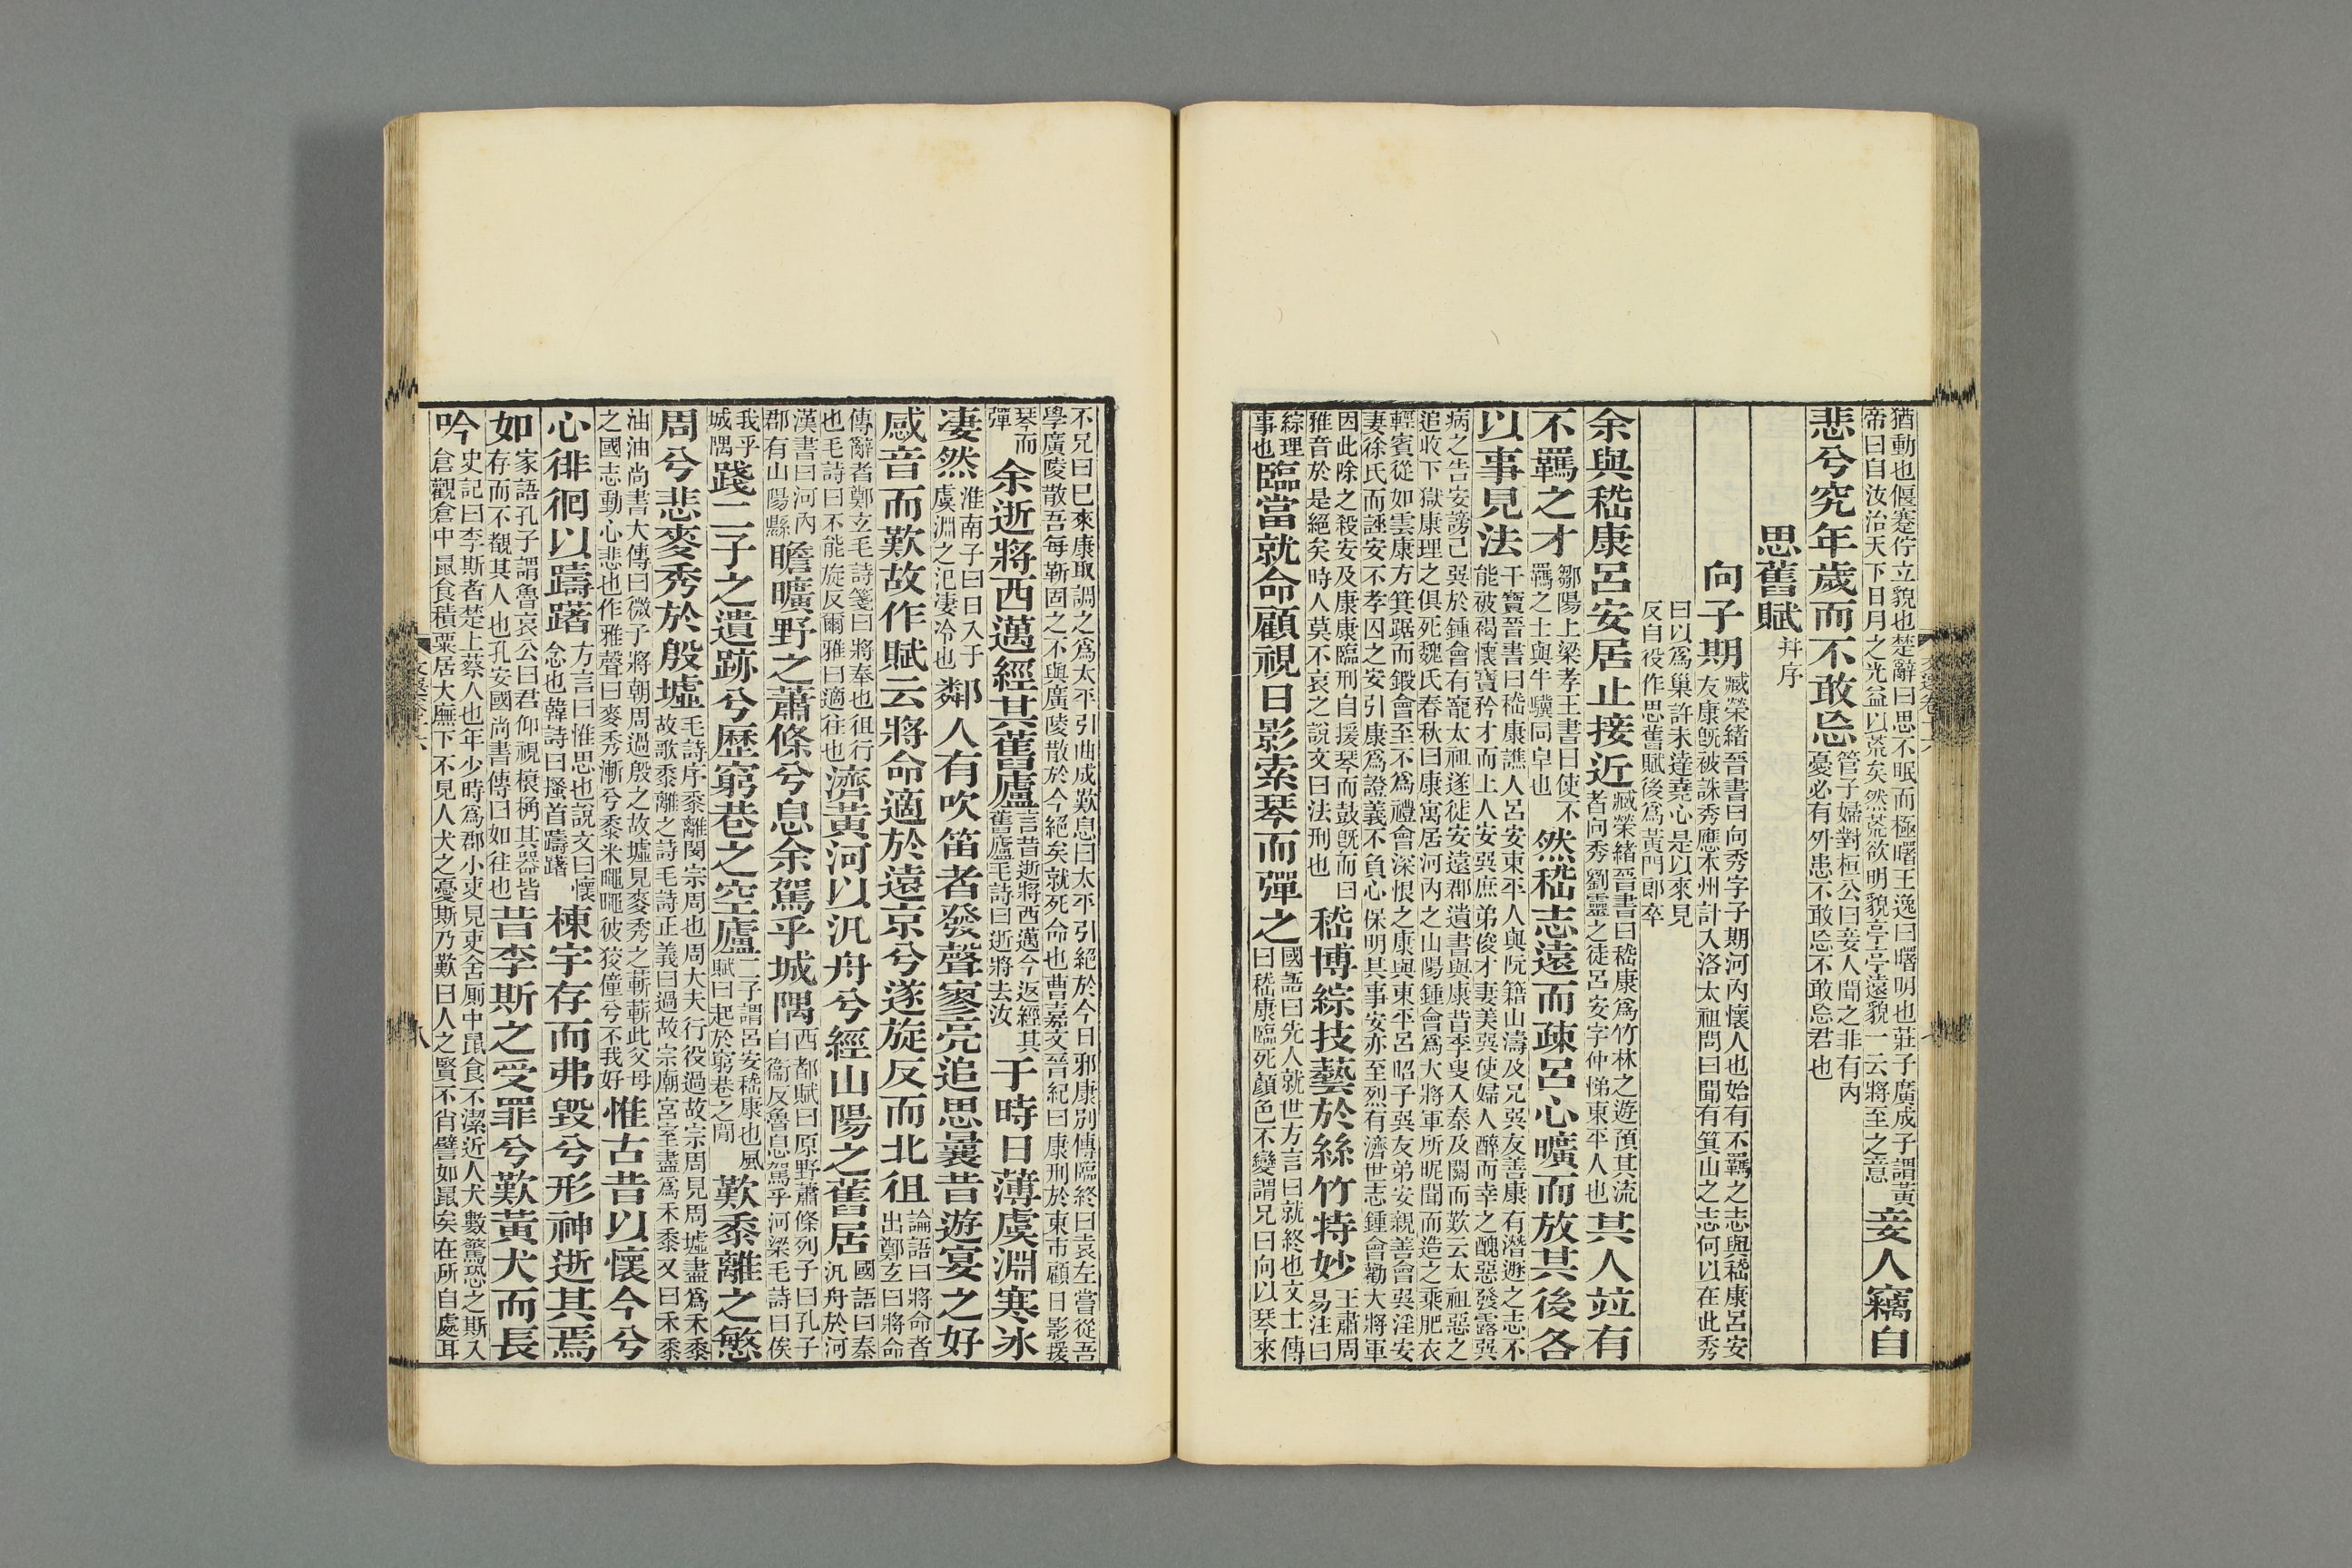 猶動也偃蹇佇立貌也楚辭曰思不眠而極曙王逸曰曙明也莊子廣成子謂黃
帝曰自汝治天下日月之光益以荒矣然荒欲明貌亭亭遠貌一云將至之意妾人竊自
悲兮究年歲而不敢忘管子婦對桓公曰妾人聞之非有內
憂必有外患不敢忘不敢忘君也
思舊賦并序
向子期臧榮緒晉書曰向秀字子期河內懷人也始有不羈之志與嵇康呂安
友康旣被誅秀應本州計入洛太祖問曰聞有箕山之志何以在此秀
曰以爲巢許未達堯心是以來見
反自役作思舊賦後爲黃門郎卒
余與嵇康呂安居止接近臧榮緒晉書曰嵇康爲竹林之遊預其流
者向秀劉靈之徒呂安字仲悌東平人也其人竝有
不羈之才鄒陽上梁孝王書曰使不
羈之士與牛驥同皁也然嵇志遠而疎呂心曠而放其後各
以事見法干寶晉書曰嵇康譙人呂安東平人與阮籍山濤及兄巽友善康有潛遯之志不
能被褐懷寶矜才而上人安巽庶弟俊才妻美巽使婦人醉而幸之醜惡發露巽
病之告安謗己巽於鍾會有寵太祖遂徙安遠郡遺書與康昔李叟入秦及關而歎云太祖惡之
追收下獄康理之俱死魏氏春秋曰康寓居河內之山陽鍾會爲大將軍所昵聞而造之乘肥衣
輕賓從如雲康方箕踞而鍛會至不爲禮會深恨之康與東平呂昭子巽友弟安親善會巽淫安
妻徐氏而誣安不孝囚之安引康爲證義不負心保明其事安亦至烈有濟世志鍾會勸大將軍
因此除之殺安及康康臨刑自援琴而鼓旣而曰
雅音於是絕矣時人莫不哀之說文曰法刑也嵇博綜技藝於絲竹特妙王肅周
易注曰
綜理
事也臨當就命顧視日影索琴而彈之國語曰先人就世方言曰就終也文士傳
曰嵇康臨死顏色不變謂兄曰向以琴來
不兄曰已來康取調之爲太平引曲成歎息曰太平引絕於今日邪康別傳臨終曰袁左嘗從吾
學廣陵散吾每靳固之不與廣陵散於今絕矣就死命也曹嘉之晉紀曰康刑於東市顧日影援
琴而
彈余逝將西邁經其舊廬言昔逝將西邁今返經其
舊廬毛詩曰逝將去汝于時日薄虞淵寒冰
淒然淮南子曰日入于
虞淵之汜淒冷也鄰人有吹笛者發聲寥亮追思曩昔遊宴之好
感音而歎故作賦云將命適於遠京兮遂旋反而北徂論語曰將命者
出鄭玄曰將命
傳辭者鄭玄毛詩箋曰將奉也徂行
也毛詩曰不能旋反爾雅曰適往也濟黃河以汎舟兮經山陽之舊居國語曰秦
汎舟於河
漢書曰河內
郡有山陽縣瞻曠野之蕭條兮息余駕乎城隅西都賦曰原野蕭條列子曰孔子
自衞反魯息駕乎河梁毛詩曰俟
我乎
城隅踐二子之遺跡兮歷窮巷之空廬二子謂呂安嵇康也風
賦曰起於窮巷之閒歎黍離之愍
周兮悲麥秀於殷墟毛詩序黍離閔宗周也周大夫行役過故宗周見周墟盡爲禾黍
故歌黍離之詩毛詩正義曰過故宗廟宮室盡爲禾黍又曰禾黍
油油尚書大傳曰微子將朝周過殷之故墟見麥秀之蔪蔪此父母
之國志動心悲也作雅聲曰麥秀漸兮黍米䵷䵷彼狡僮兮不我好惟古昔以懷今兮
心徘徊以躊躇方言曰惟思也說文曰懷
念也韓詩曰搔首躊躇棟宇存而弗毀兮形神逝其焉
如家語孔子謂魯哀公曰君仰視榱桷其器皆
存而不覩其人也孔安國尚書傳曰如往也昔李斯之受罪兮歎黃犬而長
吟史記曰李斯者楚上蔡人也年少時爲郡小吏見吏舍厠中鼠食不潔近人犬數驚恐之斯入
倉觀倉中鼠食積粟居大廡下不見人犬之憂斯乃歎曰人之賢不肖譬如鼠矣在所自處耳